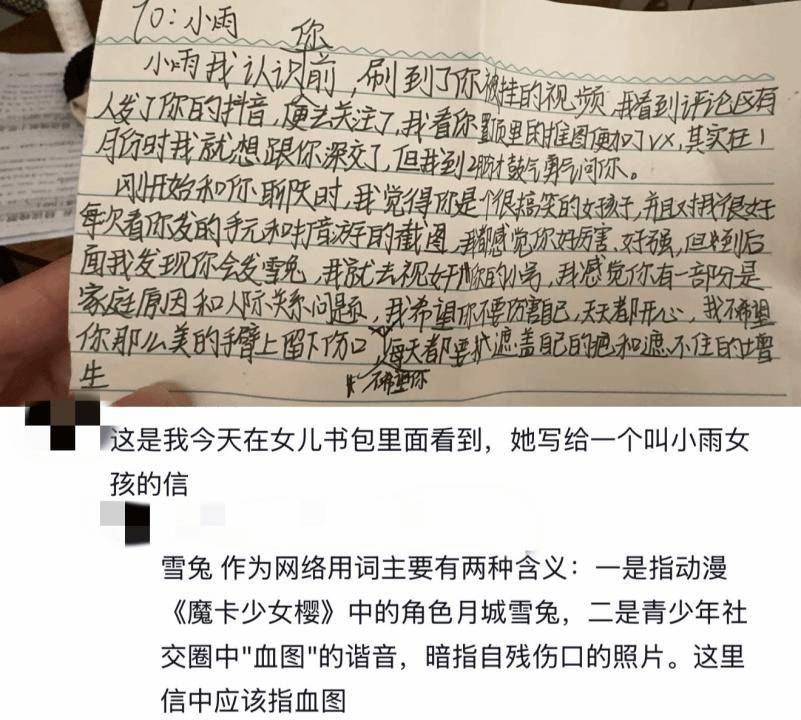 TO：小雨
你
小雨我认识前，刷到了你被挂的视频，我看到评论区有
人发了你的抖音，便去关注了，我看你置顶里的推图便加了vx，其实在1
月份时我就想跟你深交了，但我到2月才鼓气勇气问你。
刚开始和你聊天时，我觉得你是个很搞笑的女孩子，并且对我很好
每次看你发的手元和打音游的截图，我都感觉你好厉害，好强，但是到后
面我发现你会发雪兔，我就去视奸你的小号，我感觉你有一部分是
家庭原因和人际关系问题，我希望你不要伤害自己，天天都开心，我不希望
你那么美的手臂上留下伤口，每天都要扩遮盖自己的疤和遮不住的增
生
不希望你
这是我今天在女儿书包里面看到，她写给一个叫小雨女
孩的信
雪兔 作为网络用词主要有两种含义：一是指动漫
《魔卡少女樱》中的角色月城雪兔，二是青少年社
交圈中"血图"的谐音，暗指自残伤口的照片。这里
信中应该指血图